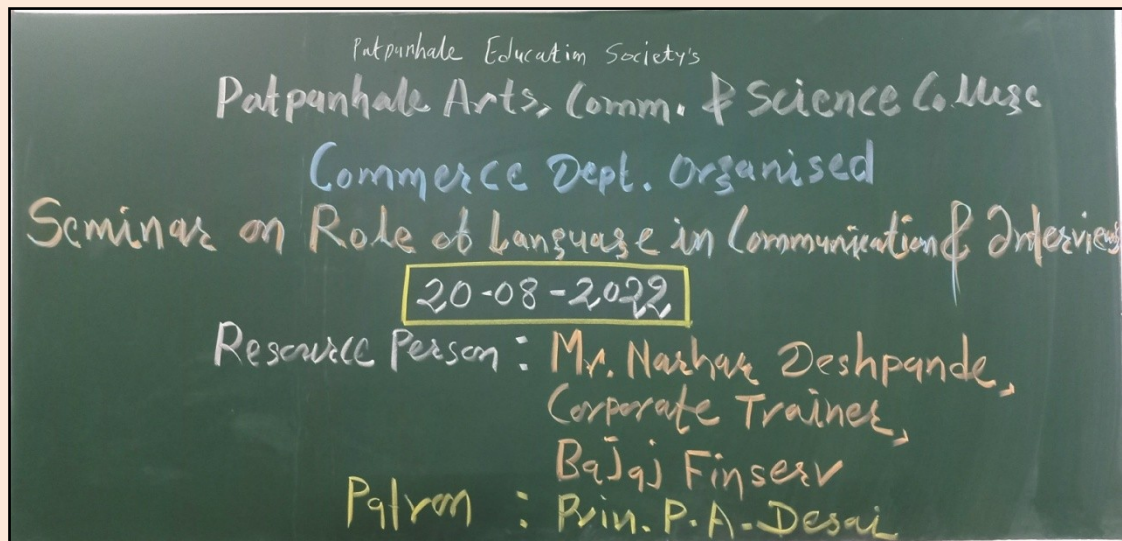 Patpanhale Education Society's
Patpanhale Arts, Comm. & Science College
Commerce Dept. Organised
Seminar on Role of Language in Communication & Interview
20-08-2022
Resource Person : Mr. Narhar Deshpande,
Corporate Trainer,
Bajaj Finserv
Patron : Prin. P.A. Desai